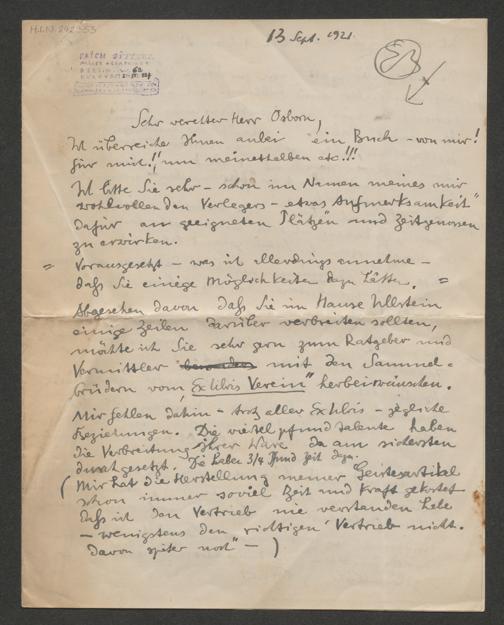 H.I.N. 242353
13 Sept. 1921.
ERICH BÜTTNER
EB
Sehr verehrter Herr Osborn,
Ich überreiche Ihnen anbei ein Buch – von mir!
für mich!, um meinethalben etc!!!
Ich bitte Sie sehr – schon im Namen meines mir
wohlwollenden Verlegers – etwas Aufmerksamkeit"
dafür an geeigneten Plätzen und Zeitgenossen
zu erwirken.
= Vorausgesetzt – was ich allerdings annehme –
daß Sie einige Möglichkeiten dazu hätten. =
Abgesehen davon daß Sie im Hause Ullstein
einige Zeilen darüber verbreiten sollten,
möchte ich Sie sehr gern zum Ratgeber und
Vermittler besonders mit den Sammel-
brüdern vom „Exlibris Verein" herbeiwünschen.
Mir fehlen dahin – trotz aller Exlibris – jegliche
Beziehungen. Die viertel pfund Talente haben
die Verbreitung ihrer Ware da am sichersten
durchgesetzt. Die haben 3/4 Pfund Zeit dazu.
( Mir hat die Herstellung meiner Geistesartikel
schon immer soviel Zeit und Kraft gekostet
daß ich den Vertrieb nie verstanden habe
– wenigstens den „richtigen" Vertrieb nicht.
davon später noch" – )